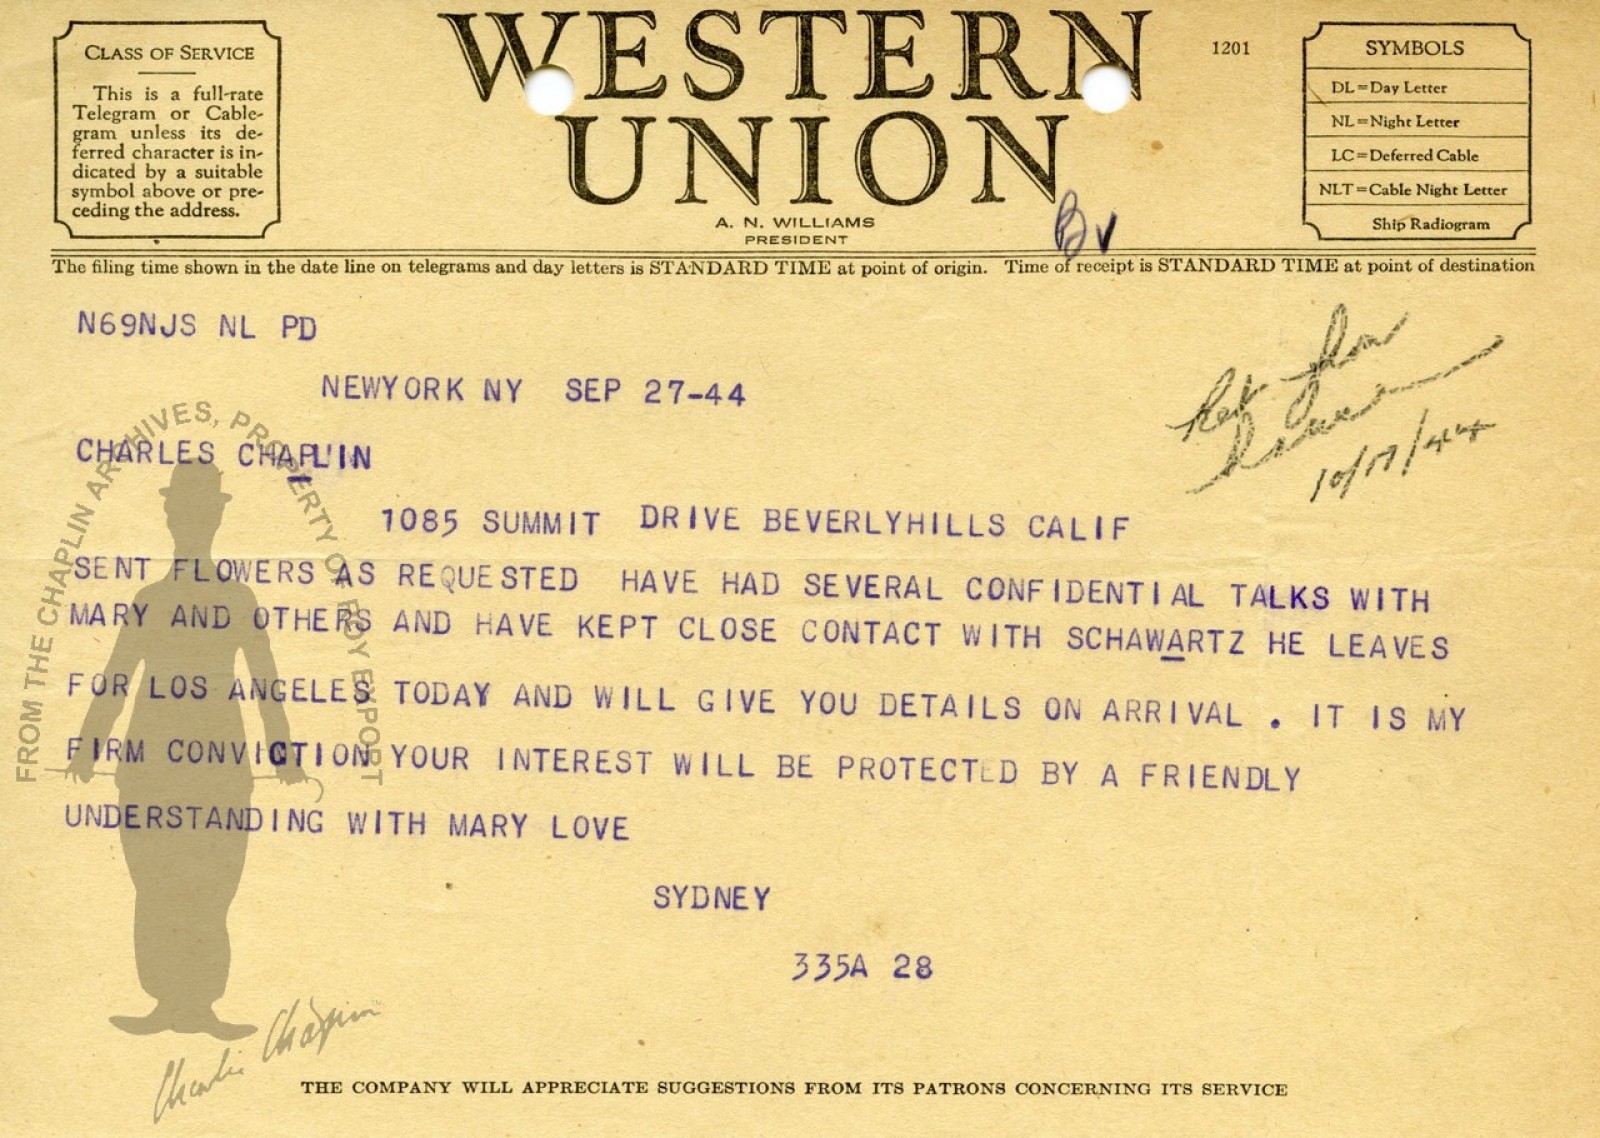 CLASS OF SERVICE
This is a full-rate
Telegram or Cable-
gram unless its de-
ferred character is in-
dicated by a suitable
symbol above or pre-
ceding the address.
WESTERN
UNION
A. N. WILLIAMS
PRESIDENT
1201
SYMBOLS
DL=Day Letter
NL=Night Letter
LC=Deferred Cable
NLT=Cable Night Letter
Ship Radiogram
The filing time shown in the date line on telegrams and day letters is STANDARD TIME at point of origin. Time of receipt is STANDARD TIME at point of destination
N69NJS NL PD
NEWYORK NY SEP 27-44
10/17/44
CHARLES CHAPLIN
1085 SUMMIT DRIVE BEVERLYHILLS CALIF
SENT FLOWERS AS REQUESTED HAVE HAD SEVERAL CONFIDENTIAL TALKS WITH
MARY AND OTHERS AND HAVE KEPT CLOSE CONTACT WITH SCHAWARTZ HE LEAVES
FOR LOS ANGELES TODAY AND WILL GIVE YOU DETAILS ON ARRIVAL . IT IS MY
FIRM CONVICTION YOUR INTEREST WILL BE PROTECTED BY A FRIENDLY
UNDERSTANDING WITH MARY LOVE
SYDNEY
335A 28
FROM THE CHAPLIN ARCHIVES, PROPERTY OF ROY EXPORT
Charlie Chaplin
THE COMPANY WILL APPRECIATE SUGGESTIONS FROM ITS PATRONS CONCERNING ITS SERVICE